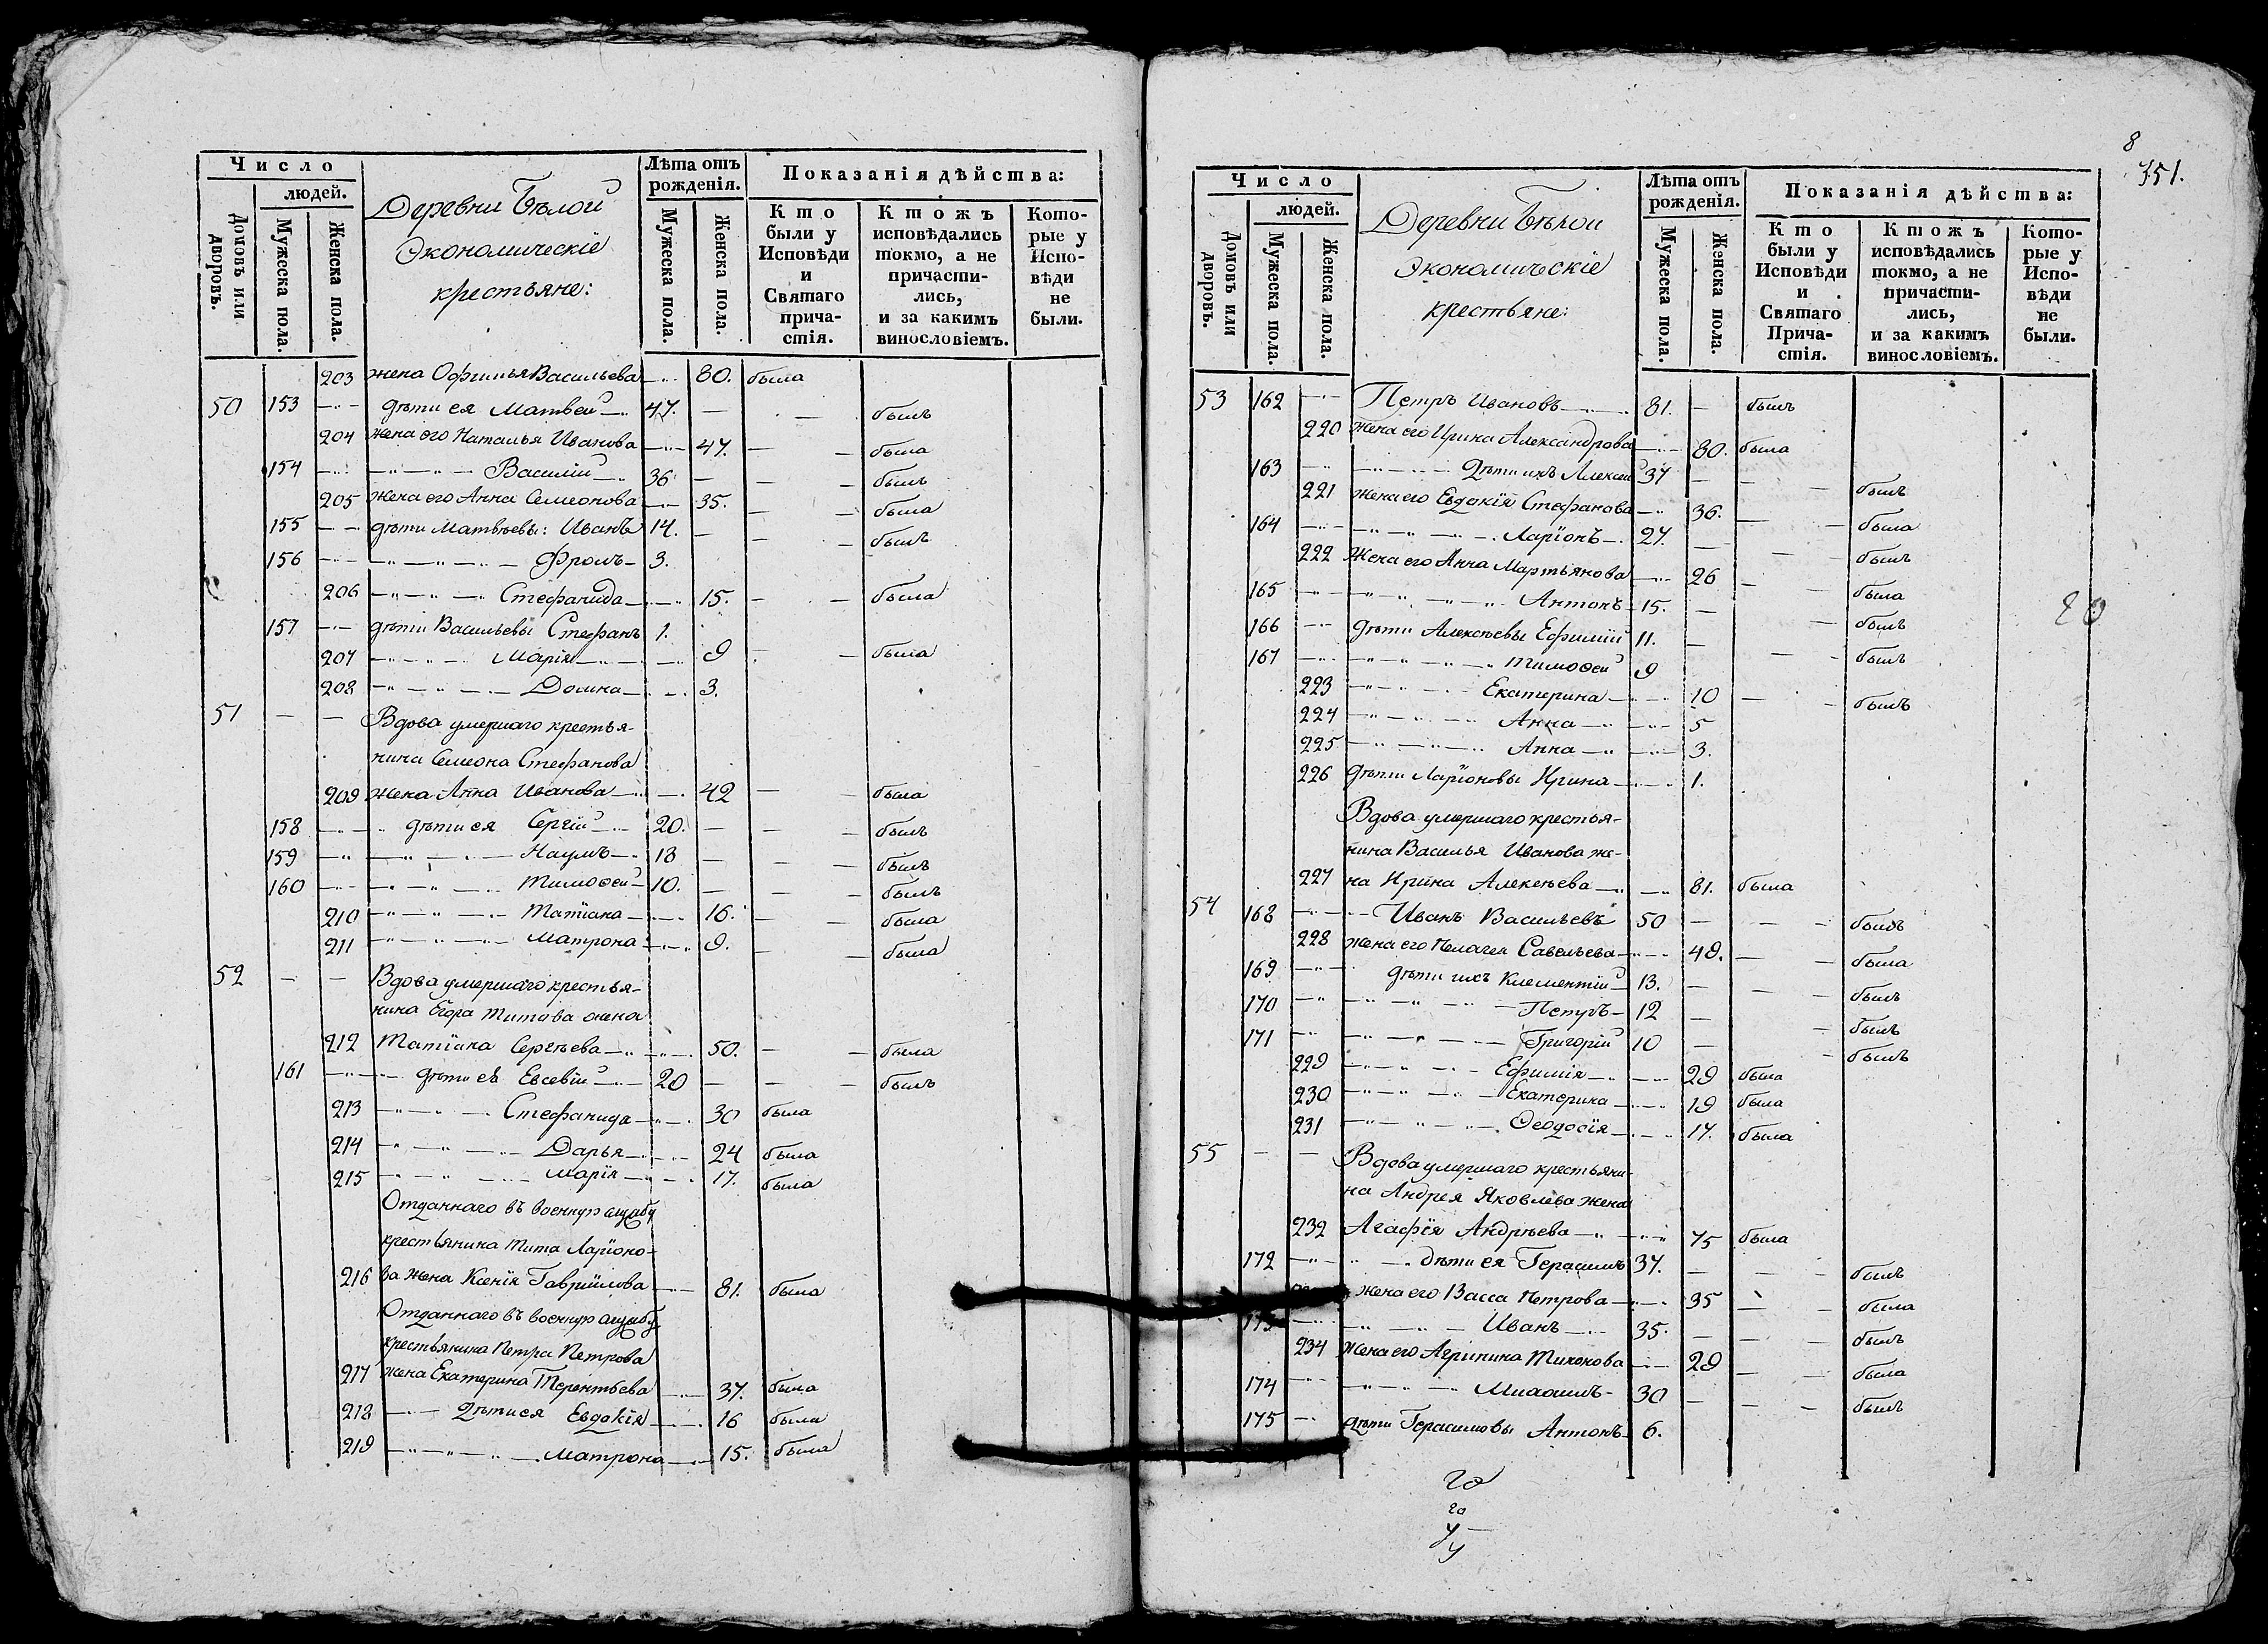 Число
людей.
Домовъ или дворовъ.
Мужеска пола.
Женска пола.
Деревни Бѣлой
Экономическіе
крестьяне:
Лѣта отъ рожденія.
Мужеска пола.
Женска пола.
Показанія дѣйства:
Кто были у Исповѣди и Святаго причастія.
Ктожъ исповѣдались токмо, а не причастились, и за какимъ винословіемъ.
Которые у Исповѣди не были.
203 жена Офимья Васильева 80. была
50 153 дѣти ея Матвей 47. — былъ
204 жена его Наталья Иванова 47. — была
154 Василій 36 — былъ
205 жена его Анна Семеонова 35. — была
155 дѣти Матвѣевы: Иванъ 14. — былъ
156 Фролъ 3.
206 Стефанида 15. — была
157 дѣти Васильевы Стефанъ 1.
207 Марія 9 — была
208 Домна 3.
51 — — Вдова умершаго крестья-
нина Семеона Стефанова
209 жена Анна Иванова 42 — была
158 дѣти ея Сергій 20. — былъ
159 Наумъ 18 — былъ
160 Тимоѳей 10. — былъ
210 Татіана 16. — была
211 Матрона 9. — была
52 — — Вдова умершаго крестья-
нина Егора Титова жена
212 Татіана Сергѣева 50. — была
161 дѣти ея Евсевій 20 — былъ
213 Стефанида 30 была
214 Дарья 24 была
215 Марія 17. была
Отданнаго въ военную службу
крестьянина Тита Ларіоно-
216 ва жена Ксенія Гавріилова 81. была
Отданнаго въ военную службу
крестьянина Петра Петрова
217 жена Екатерина Терентьева 37. была
218 Дѣти ея Евдокія 16 была
219 Матрона 15. была
8
351.
Число
людей.
Домовъ или дворовъ.
Мужеска пола.
Женска пола.
Деревни Бѣлой
Экономическіе
крестьяне:
Лѣта отъ рожденія.
Мужеска пола.
Женска пола.
Показанія дѣйства:
Кто были у Исповѣди и Святаго Причастія.
Ктожъ исповѣдались токмо, а не причастились, и за какимъ винословіемъ.
Которые у Исповѣди не были.
53 162 Петръ Ивановъ 81. — былъ
220 жена его Ирина Александрова 80. была
163 Дѣти ихъ Алексей 37 — былъ
221 жена его Евдокія Стефанова 36. — была
164 Ларіонъ 27. — былъ
222 Жена его Анна Мартьянова 26 — была
165 Антонъ 15. — былъ
166 дѣти Алексѣевы Ефимій 11. — былъ
167 Тимоѳей 9
223 Екатерина 10 — былъ
224 Анна 5
225 Анна 3.
226 дѣти Ларіоновы Ирина 1.
Вдова умершаго крестья-
нина Василья Иванова же-
227 на Ирина Алексѣева 81. была
54 168 Иванъ Васильевъ 50 — былъ
228 жена его Пелагея Савельева 49. — была
169 дѣти ихъ Климентій 13. — былъ
170 Петръ 12 — былъ
171 Григорій 10 — былъ
229 Ефимія 29 была
230 Екатерина 19 была
231 Ѳеодосія 17. была
55 — — Вдова умершаго крестьяни-
на Андрея Яковлева жена
232 Агафія Андрѣева 75 была
172 дѣти ея Герасимъ 37. — былъ
жена его Васса Петрова 35 — была
173 Иванъ 35. — былъ
234 жена его Агрипина Тихонова 29 — была
174 30 — былъ
175 дѣти Герасимовы Антонъ 6.